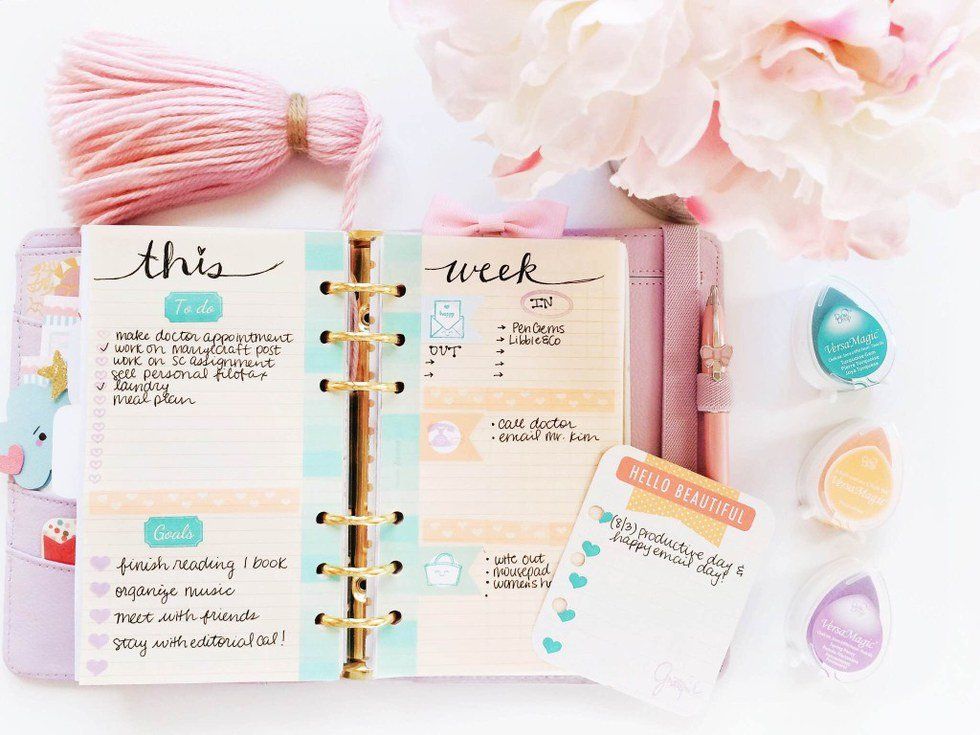 this
To do
make doctor appointment
work on marvycraft post
work on SC assignment
sell personal filofax
laundry
meal plan
Goals
finish reading 1 book
organize music
meet with friends
stay with editorial cal!
week
happy
IN
→ PenGems
→ Libbie&Co
→
→
OUT
→
→
• call doctor
• email Mr. Kim
• wite out
• mousepad
• womens
HELLO BEAUTIFUL
(8/3) productive day &
happy email day!
VersaMagic
Turquoise Gem
VersaMagic
VersaMagic